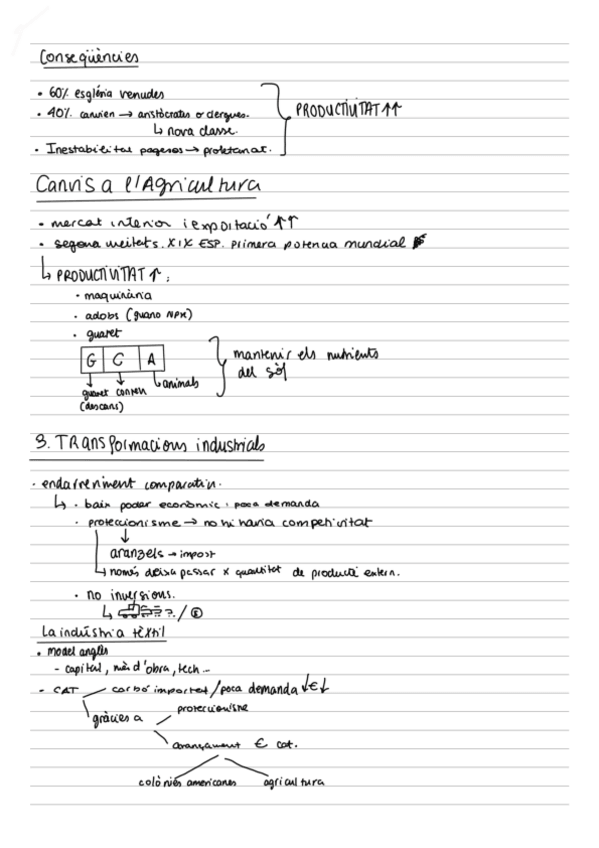 Conseqüències
• 60% església venudes
• 40% canvien → aristòcrates o clergues.
↳ nova classe.
• Inestabilitat pagesos → proletariat.
PRODUCTIVITAT ↑↑
Canvis a l'Agricultura
• mercat interior i exportació ↑↑
• segona meitat s. XIX ESP. primera potencia mundial
↳ PRODUCTIVITAT ↑:
• maquinària
• adobs (guano NPK)
• guaret
G C A
guaret conreu animals
(descans)
mantenir els nutrients
del sòl
3. TRANSformacions industrials
• endarreriment comparatiu.
↳ • baix poder econòmic: poca demanda
• proteccionisme → no hi havia competivitat
aranzels → impost
↳ només deixa passar x quantitat de producte extern.
• no inversions.
↳ ? / €
La indústria tèxtil
• model anglès
- capital, mà d'obra, tech...
- CAT carbó importat / poca demanda ↓€↓
gràcies a proteccionisme
€ cat.
colònies americanes agricultura